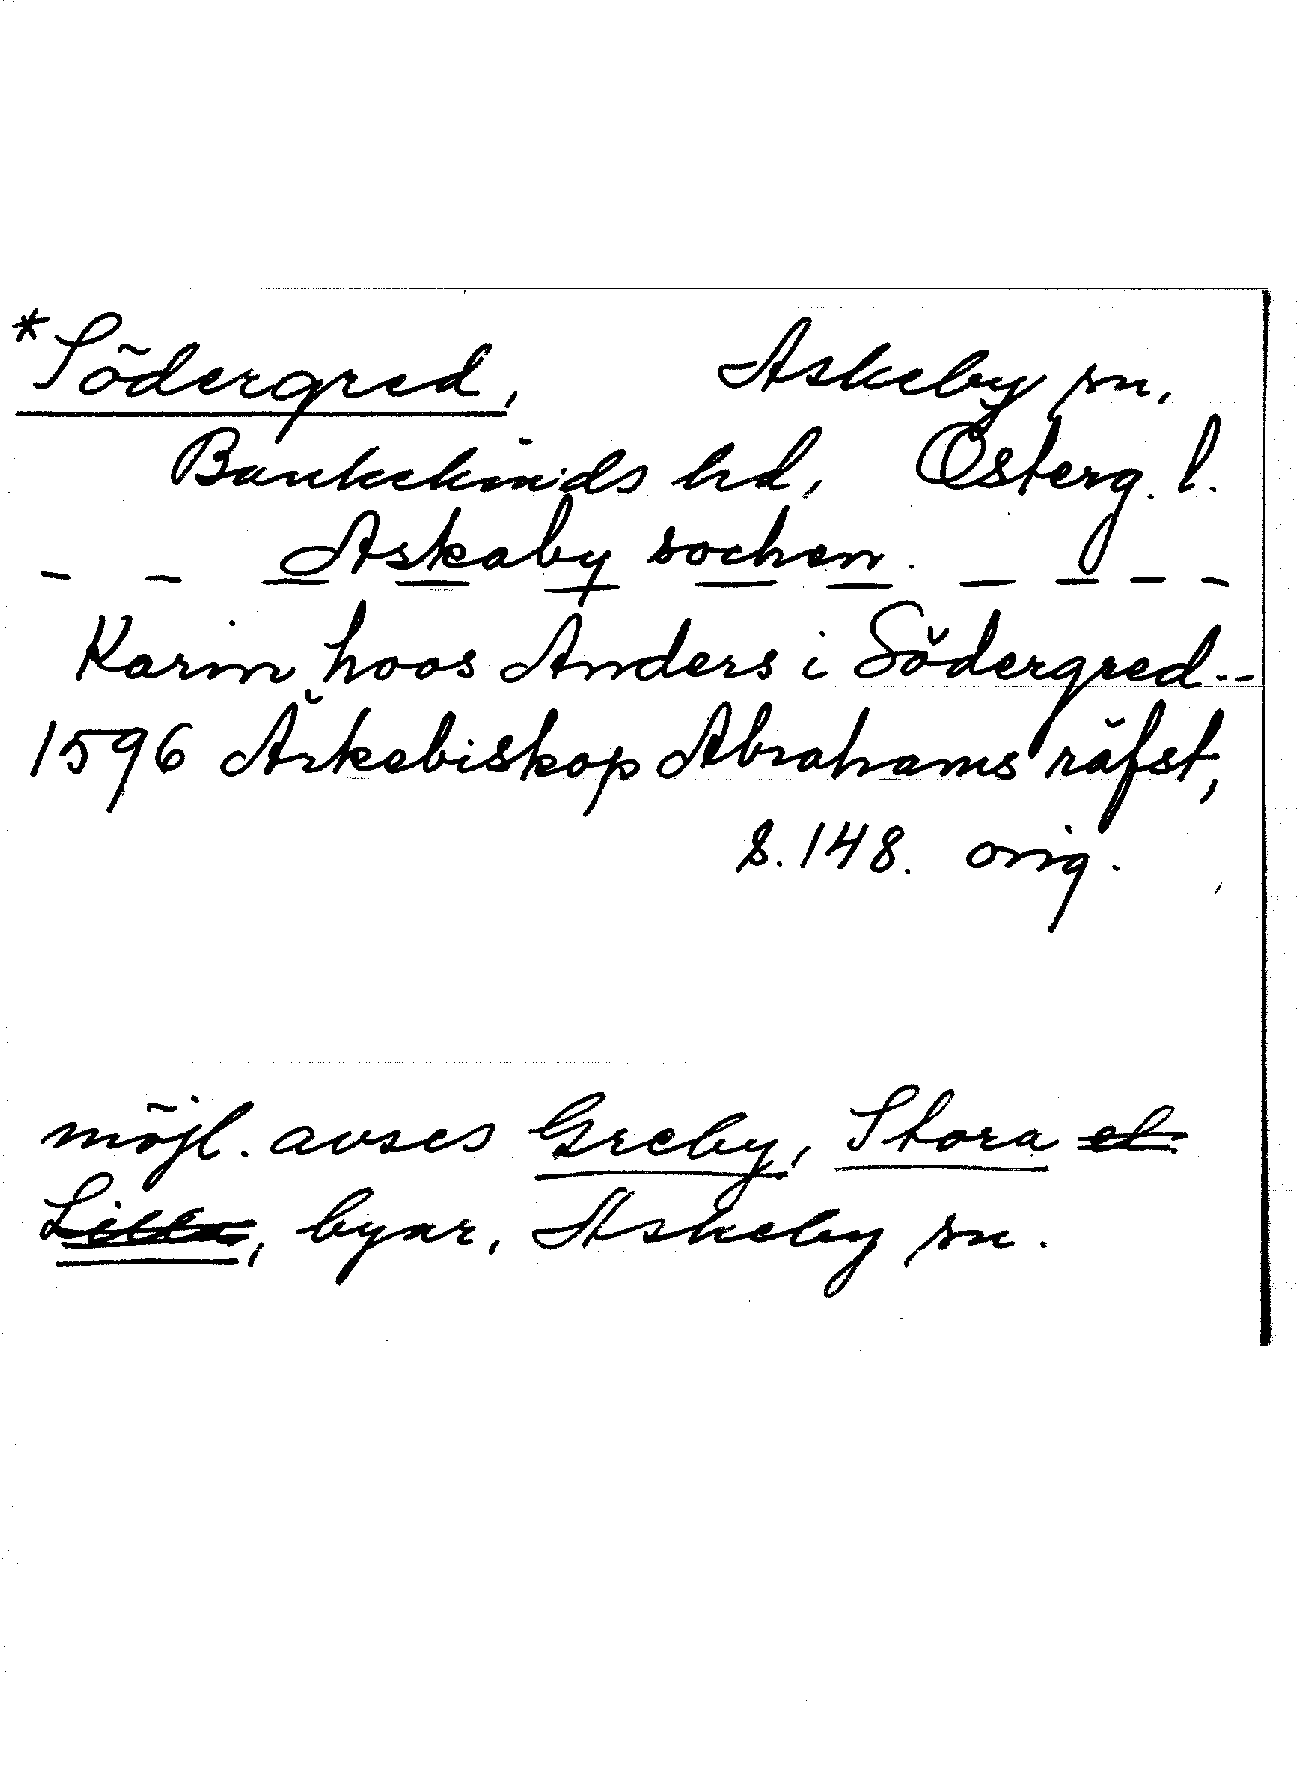 *Södergred, Askeby sn,
Bankekinds hd, Österg. l.
_ _ Askaby sochen. _ _ _ _
Karin hoos Anders i Södergred--
1596 Ärkebiskop Abrahams räfst,
s. 148. orig.
möjl. avses Greby, Stora et
Lilla, byar, Askeby sn.